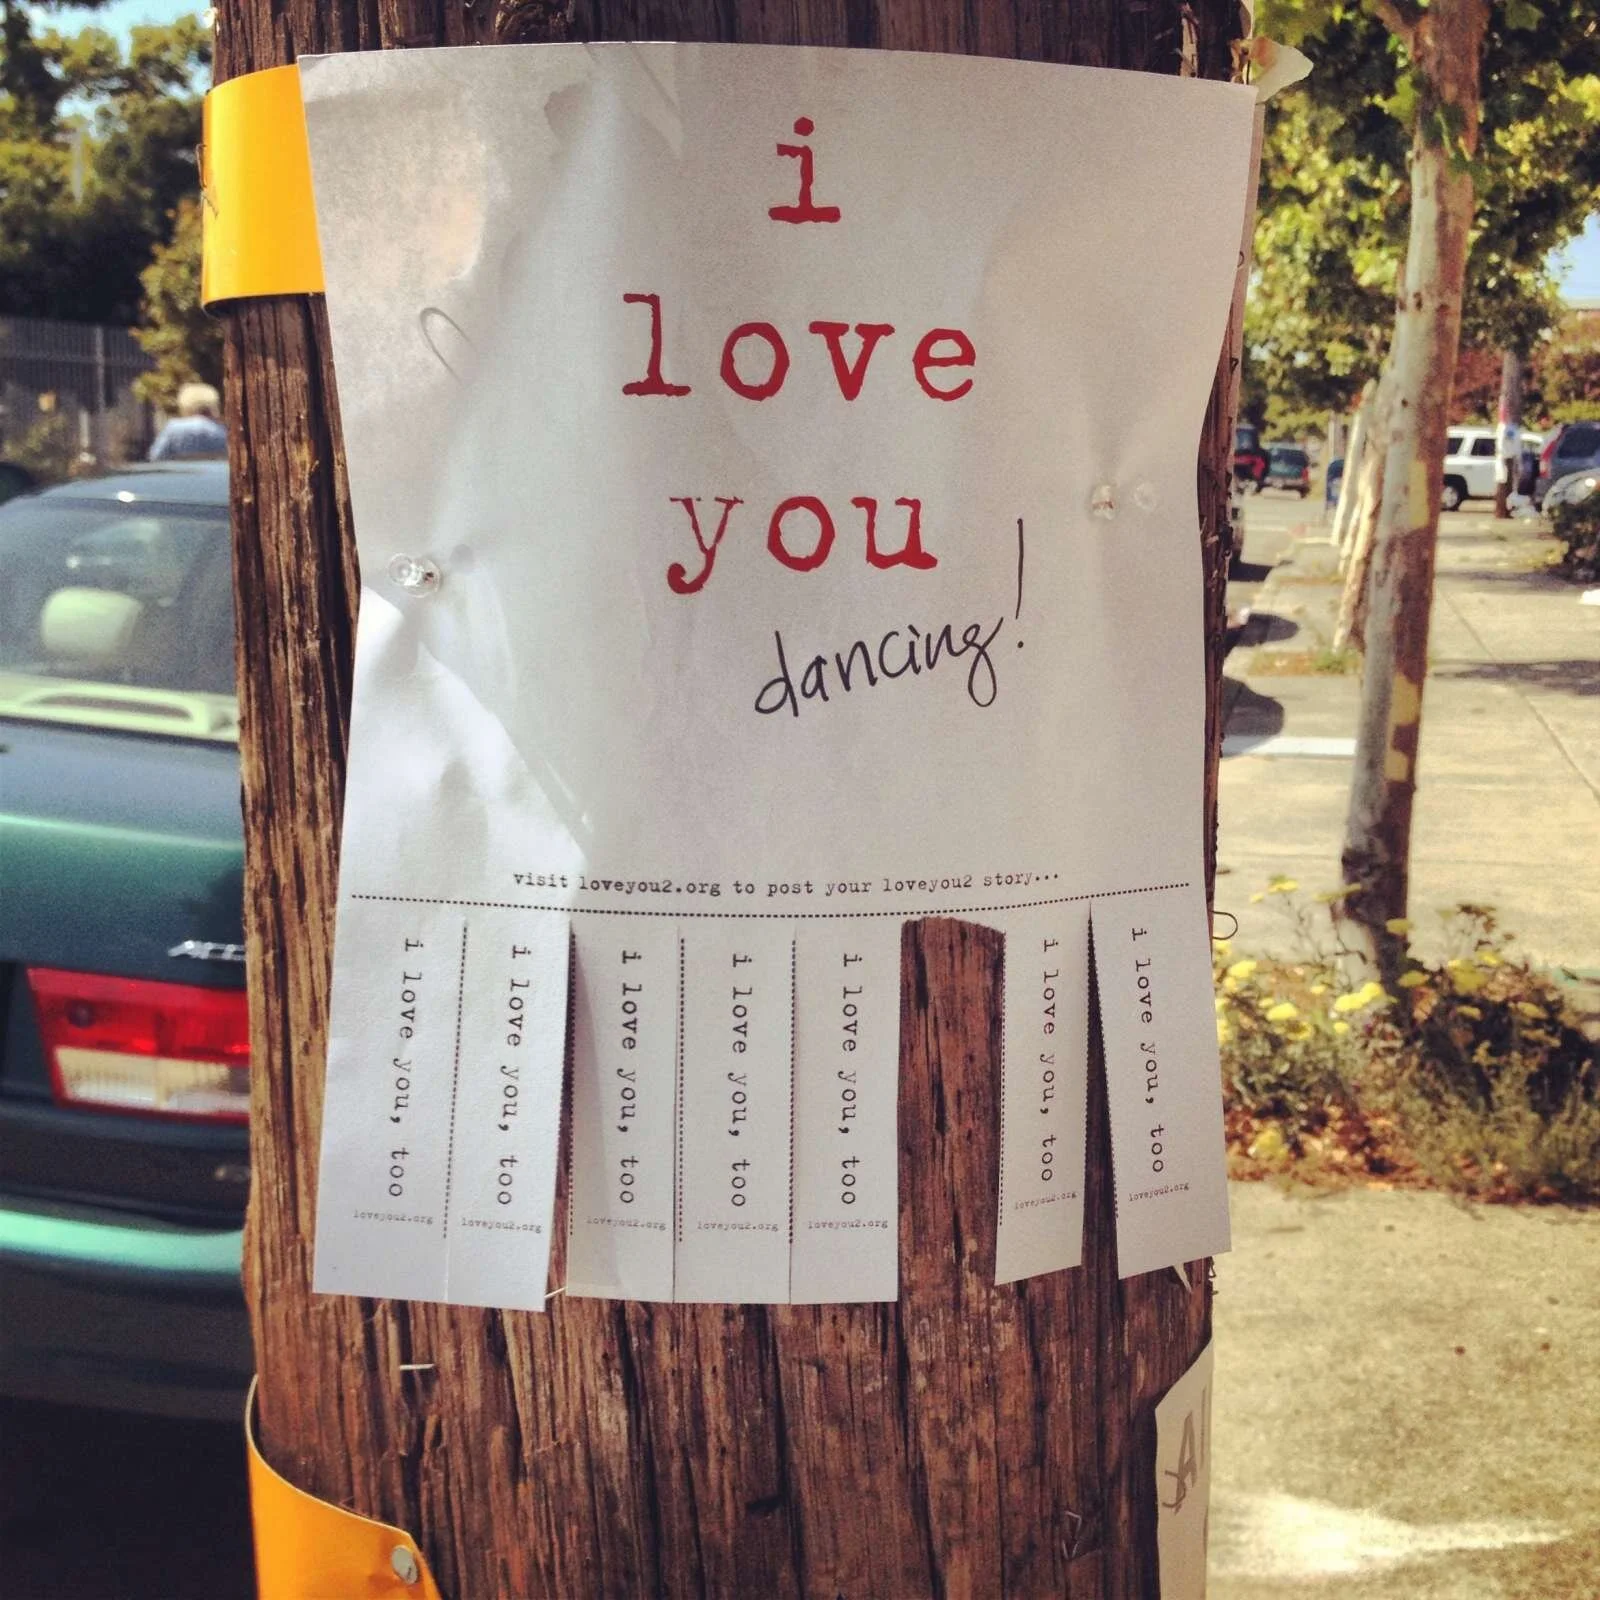 i
love
you
dancing!
visit loveyou2.org to post your loveyou2 story...
i love you, too
loveyou2.org
i love you, too
loveyou2.org
i love you, too
loveyou2.org
i love you, too
loveyou2.org
i love you, too
loveyou2.org
i love you, too
loveyou2.org
i love you, too
loveyou2.org